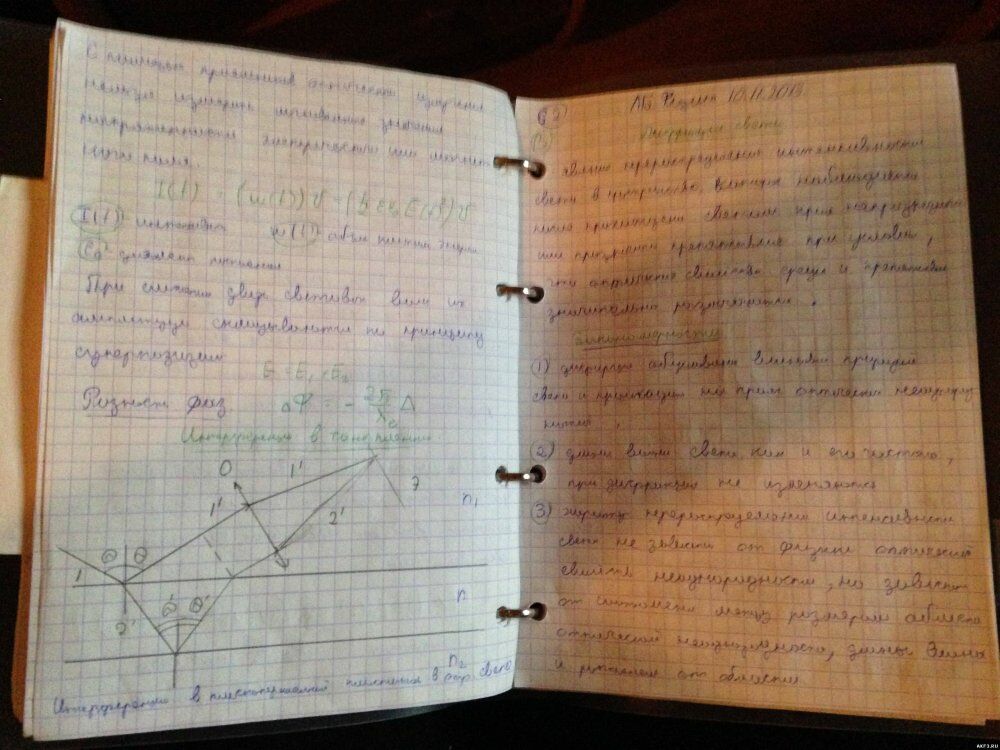 С помощью приёмников оптического излучения
нельзя измерить мгновенные значения
напряженности электрического или магнит
ного поля.
I(t) = (w(t)) v = (½ εε₀ E(t)²) v
I(t) интенсивн w(t) объём плотн энергии
При сложении двух световых волн их
амплитуды складываются по принципу
суперпозиции
E = E₁ + E₂
Разность фаз ΔΨ = - 2π/λ₀ Δ
Интерференция в тонкой плёнке
O 1' Э
1' 2' n₁
1 Θ Θ
2' Θ' Θ' n
n₂
Интерференция в плоскопараллельной пластинке в отр. света
10.11.2013
Дифракция света
явление перераспределения интенсивности
света в пространстве, которая наблюдается
или прозрачных препятствие при условии,
что оптические свойства среды и препятствия
значительно различаются.
Закономерности
1) дифракция обусловлена волновой природой
света и происходит на трёх оптических неоднород
ностях.
2) длина волны света, как и его частота,
при дифракции не изменяются
3) характер перераспределения интенсивности
света не зависит от физико оптических
свойств неоднородности, но зависит
от соотношения между размером области
оптической неоднородности, длины волны
и расстояния от области
AKF3.RU